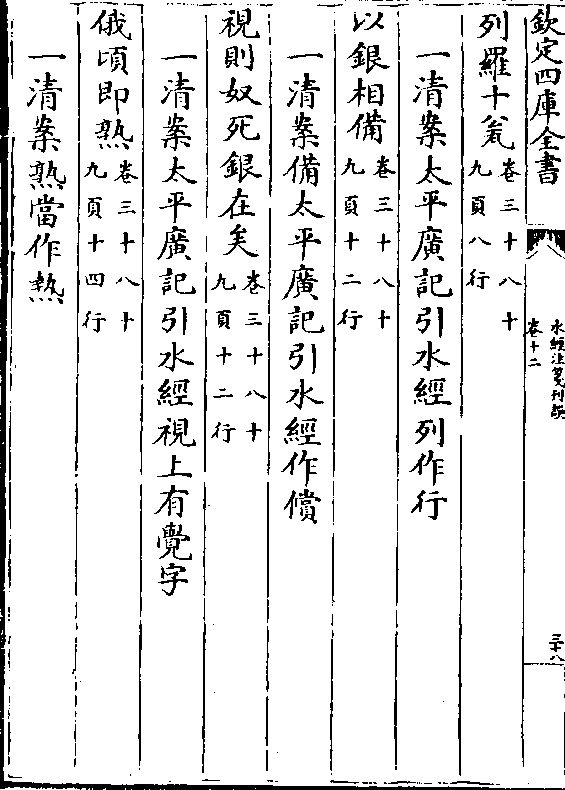 欽定四庫全書
水經注箋刊誤
卷十二
三十八
列羅十瓮卷三十八十九頁八行
一清案太平廣記引水經列作行
以銀相備卷三十八十九頁十二行
一清案備太平廣記引水經作償
視則奴死銀在矣卷三十八十九頁十二行
一清案太平廣記引水經視上有覺字
俄頃即熟卷三十八十九頁十四行
一清案熟當作熱